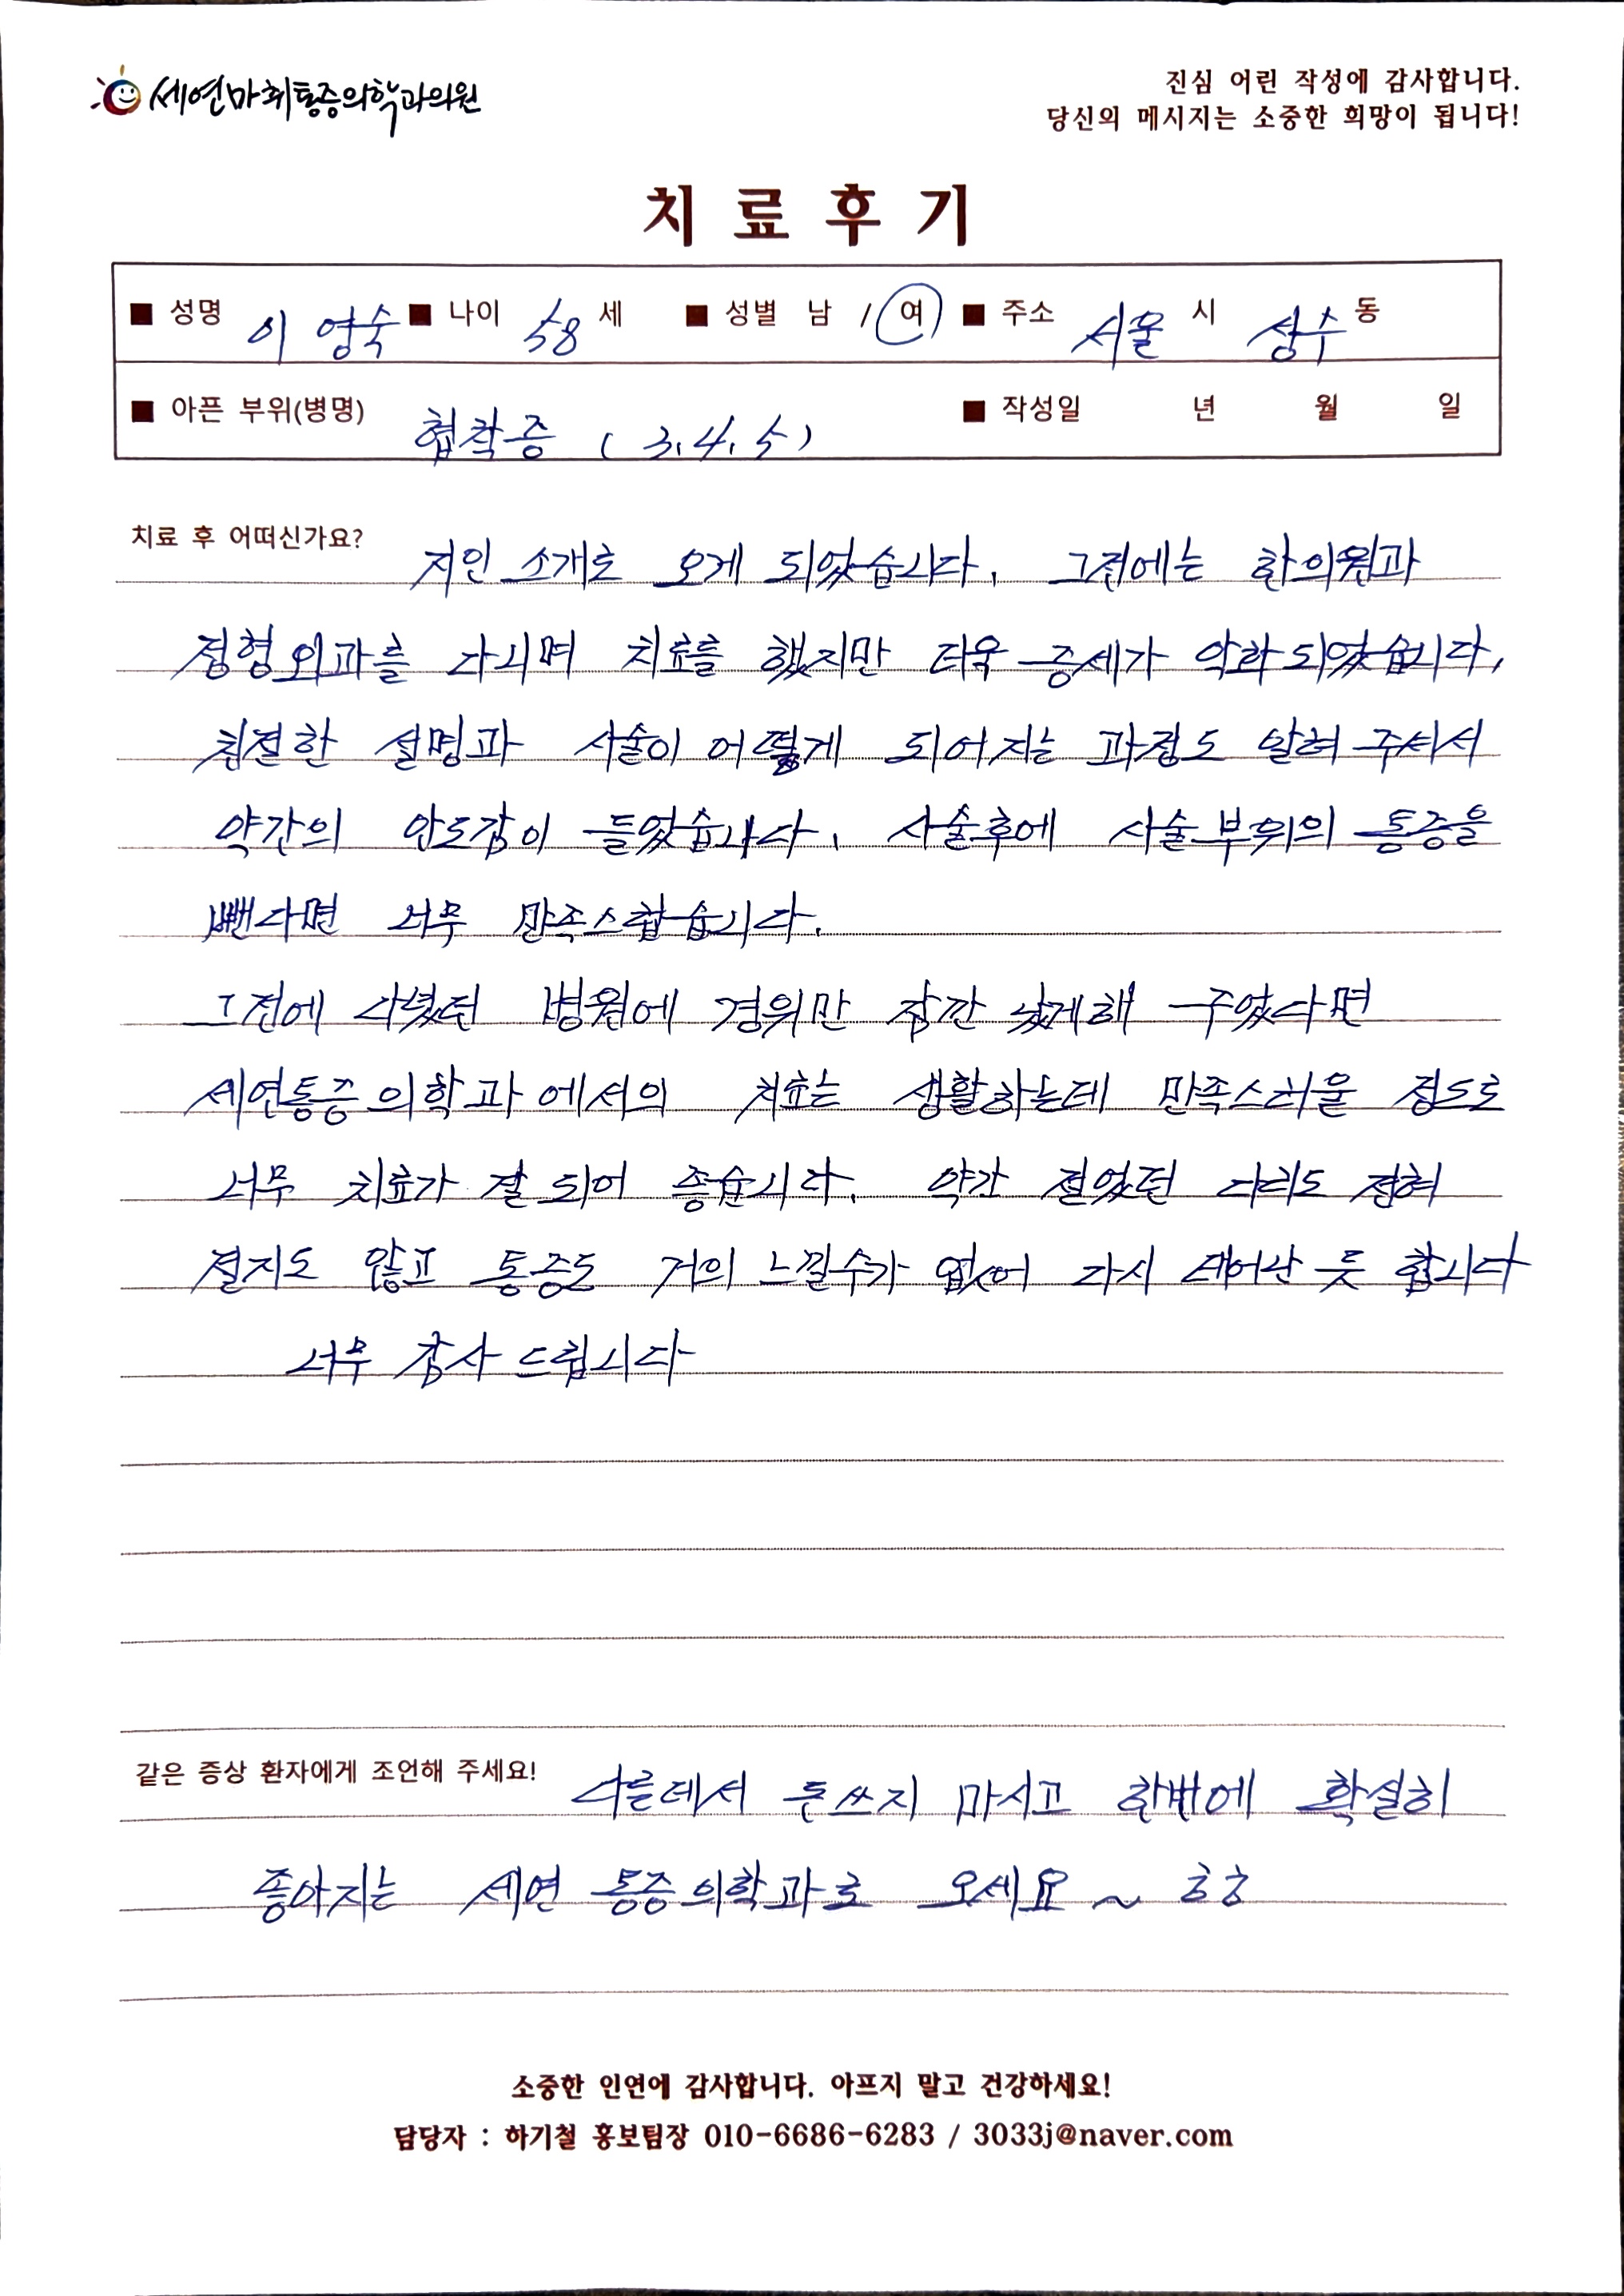 세연마취통증의학과의원
진심 어린 작성에 감사합니다.
당신의 메시지는 소중한 희망이 됩니다!
치료후기
■ 성명 이영숙 ■ 나이 58 세 ■ 성별 남 / 여 ■ 주소 서울 시 상수 동
■ 아픈 부위(병명) 협착증 (3.4.5) ■ 작성일 년 월 일
치료 후 어떠신가요? 지인 소개로 오게 되었습니다. 그전에는 한의원과
정형외과를 다니며 치료를 했지만 더욱 증세가 악화 되었습니다,
친절한 설명과 시술이 어떻게 되어지는 과정도 알려 주셔서
약간의 안도감이 들었습니다. 시술후에 시술부위의 통증을
뺀다면 너무 만족스럽습니다.
그전에 다녔던 병원에 경위만 잠깐 낫게해 주었다면
세연통증의학과에서의 치료는 생활하는데 만족스러울 정도로
너무 치료가 잘 되어 좋습니다. 약간 절었던 다리도 전혀
절지도 않고 통증도 거의 느낄수가 없어 다시 태어난 듯 합니다
너무 감사 드립니다
같은 증상 환자에게 조언해 주세요! 다른데서 돈쓰지 마시고 한번에 확실히
좋아지는 세연 통증의학과로 오세요 ~ ㅎㅎ
소중한 인연에 감사합니다. 아프지 말고 건강하세요!
담당자 : 하기철 홍보팀장 010-6686-6283 / 3033j@naver.com